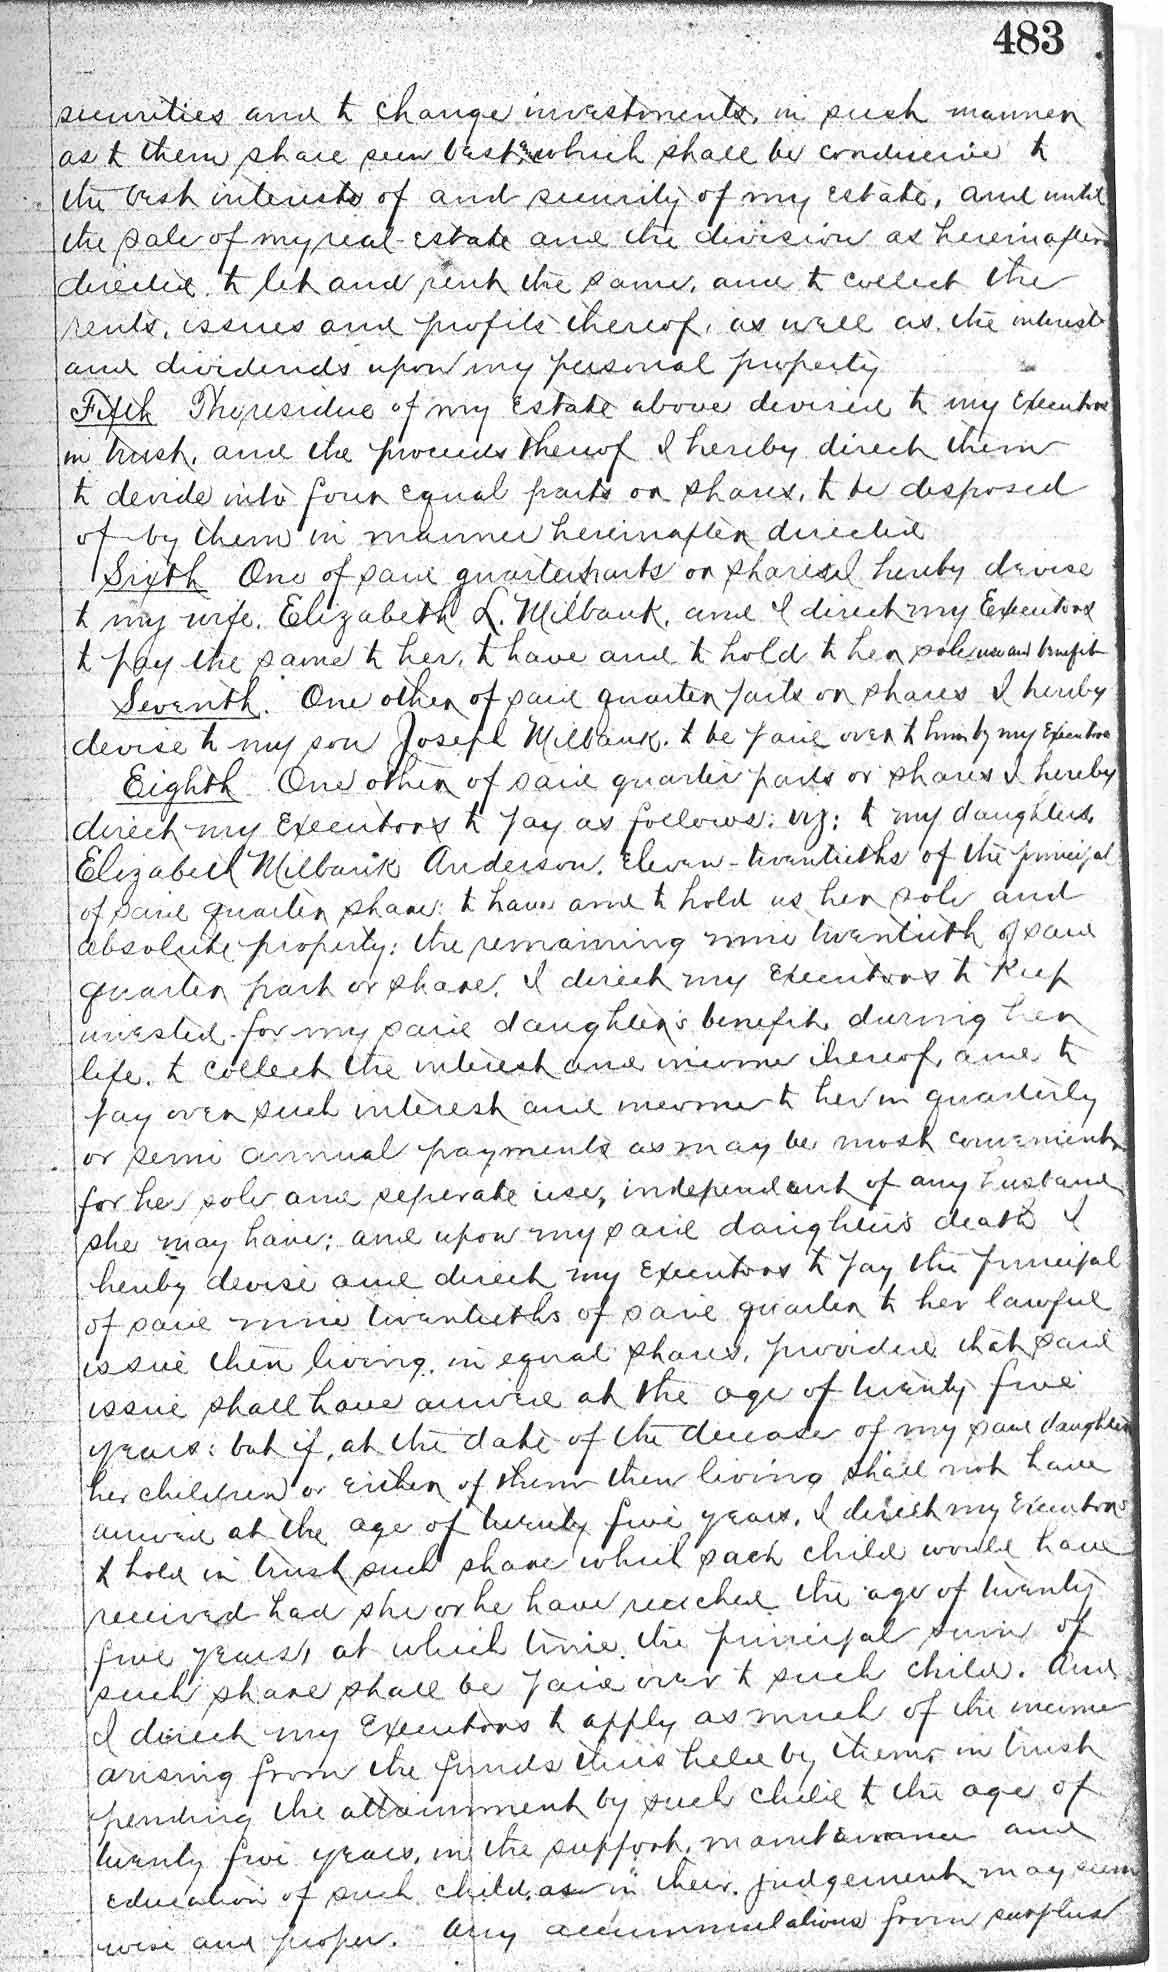 483
securities and to change investments, in such manner
as to them shall seem best & which shall be conducive to
the best interests of and security of my estate, and until
the sale of my real estate and the division as hereinafter
directed to let and rent the same, and to collect the
rents, issues and profits thereof, as well as the interest
and dividends upon my personal property
Fifth The residue of my Estate above devised to my Executors
in trust, and the proceeds thereof I hereby direct them
to devide into four equal parts or shares, to be disposed
of by them in manner hereinafter directed
Sixth One of said quarter parts or shares I hereby devise
to my wife, Elizabeth L. Milbank, and I direct my Executors
to pay the same to her, to have and to hold to her sole use and benefit
Seventh. One other of said quarter parts or shares I hereby
devise to my son Joseph Milbank, to be paid over to him by my Executors
Eighth One other of said quarter parts or shares I hereby
direct my Executors to pay as follows: viz: to my daughter,
Elizabeth Milbank Anderson, Eleven-twentieths of the principal
of said quarter share: to have and to hold as her sole and
absolute property: the remaining nine twentieth of said
quarter part or share, I direct my Executors to keep
invested for my said daughter's benefit, during her
life, to collect the interest and income thereof, and to
pay over such interest and income to her in quarterly
or semi annual payments as may be most convenient
for her sole and seperate use, independent of any husband
she may have; and upon my said daughter's death I
hereby devise and direct my Executors to pay the principal
of said nine twentieths of said quarter to her lawful
issue then living, in equal shares, provided that said
issue shall have arrived at the age of twenty five
years: but if, at the date of the decease of my said daughter
her children or either of them then living shall not have
arrived at the age of twenty five years, I direct my Executors
to hold in trust such share which such child would have
received had she or he have reached the age of twenty
five years, at which time, the principal sum of
such share shall be paid over to such child. And
I direct my Executors to apply as much of the income
arising from the funds thus held by them in trust
pending the attainment by such child to the age of
twenty five years, in the support, maintenance and
education of such child, as in their judgement may seem
wise and proper. Any accummulations from surplus